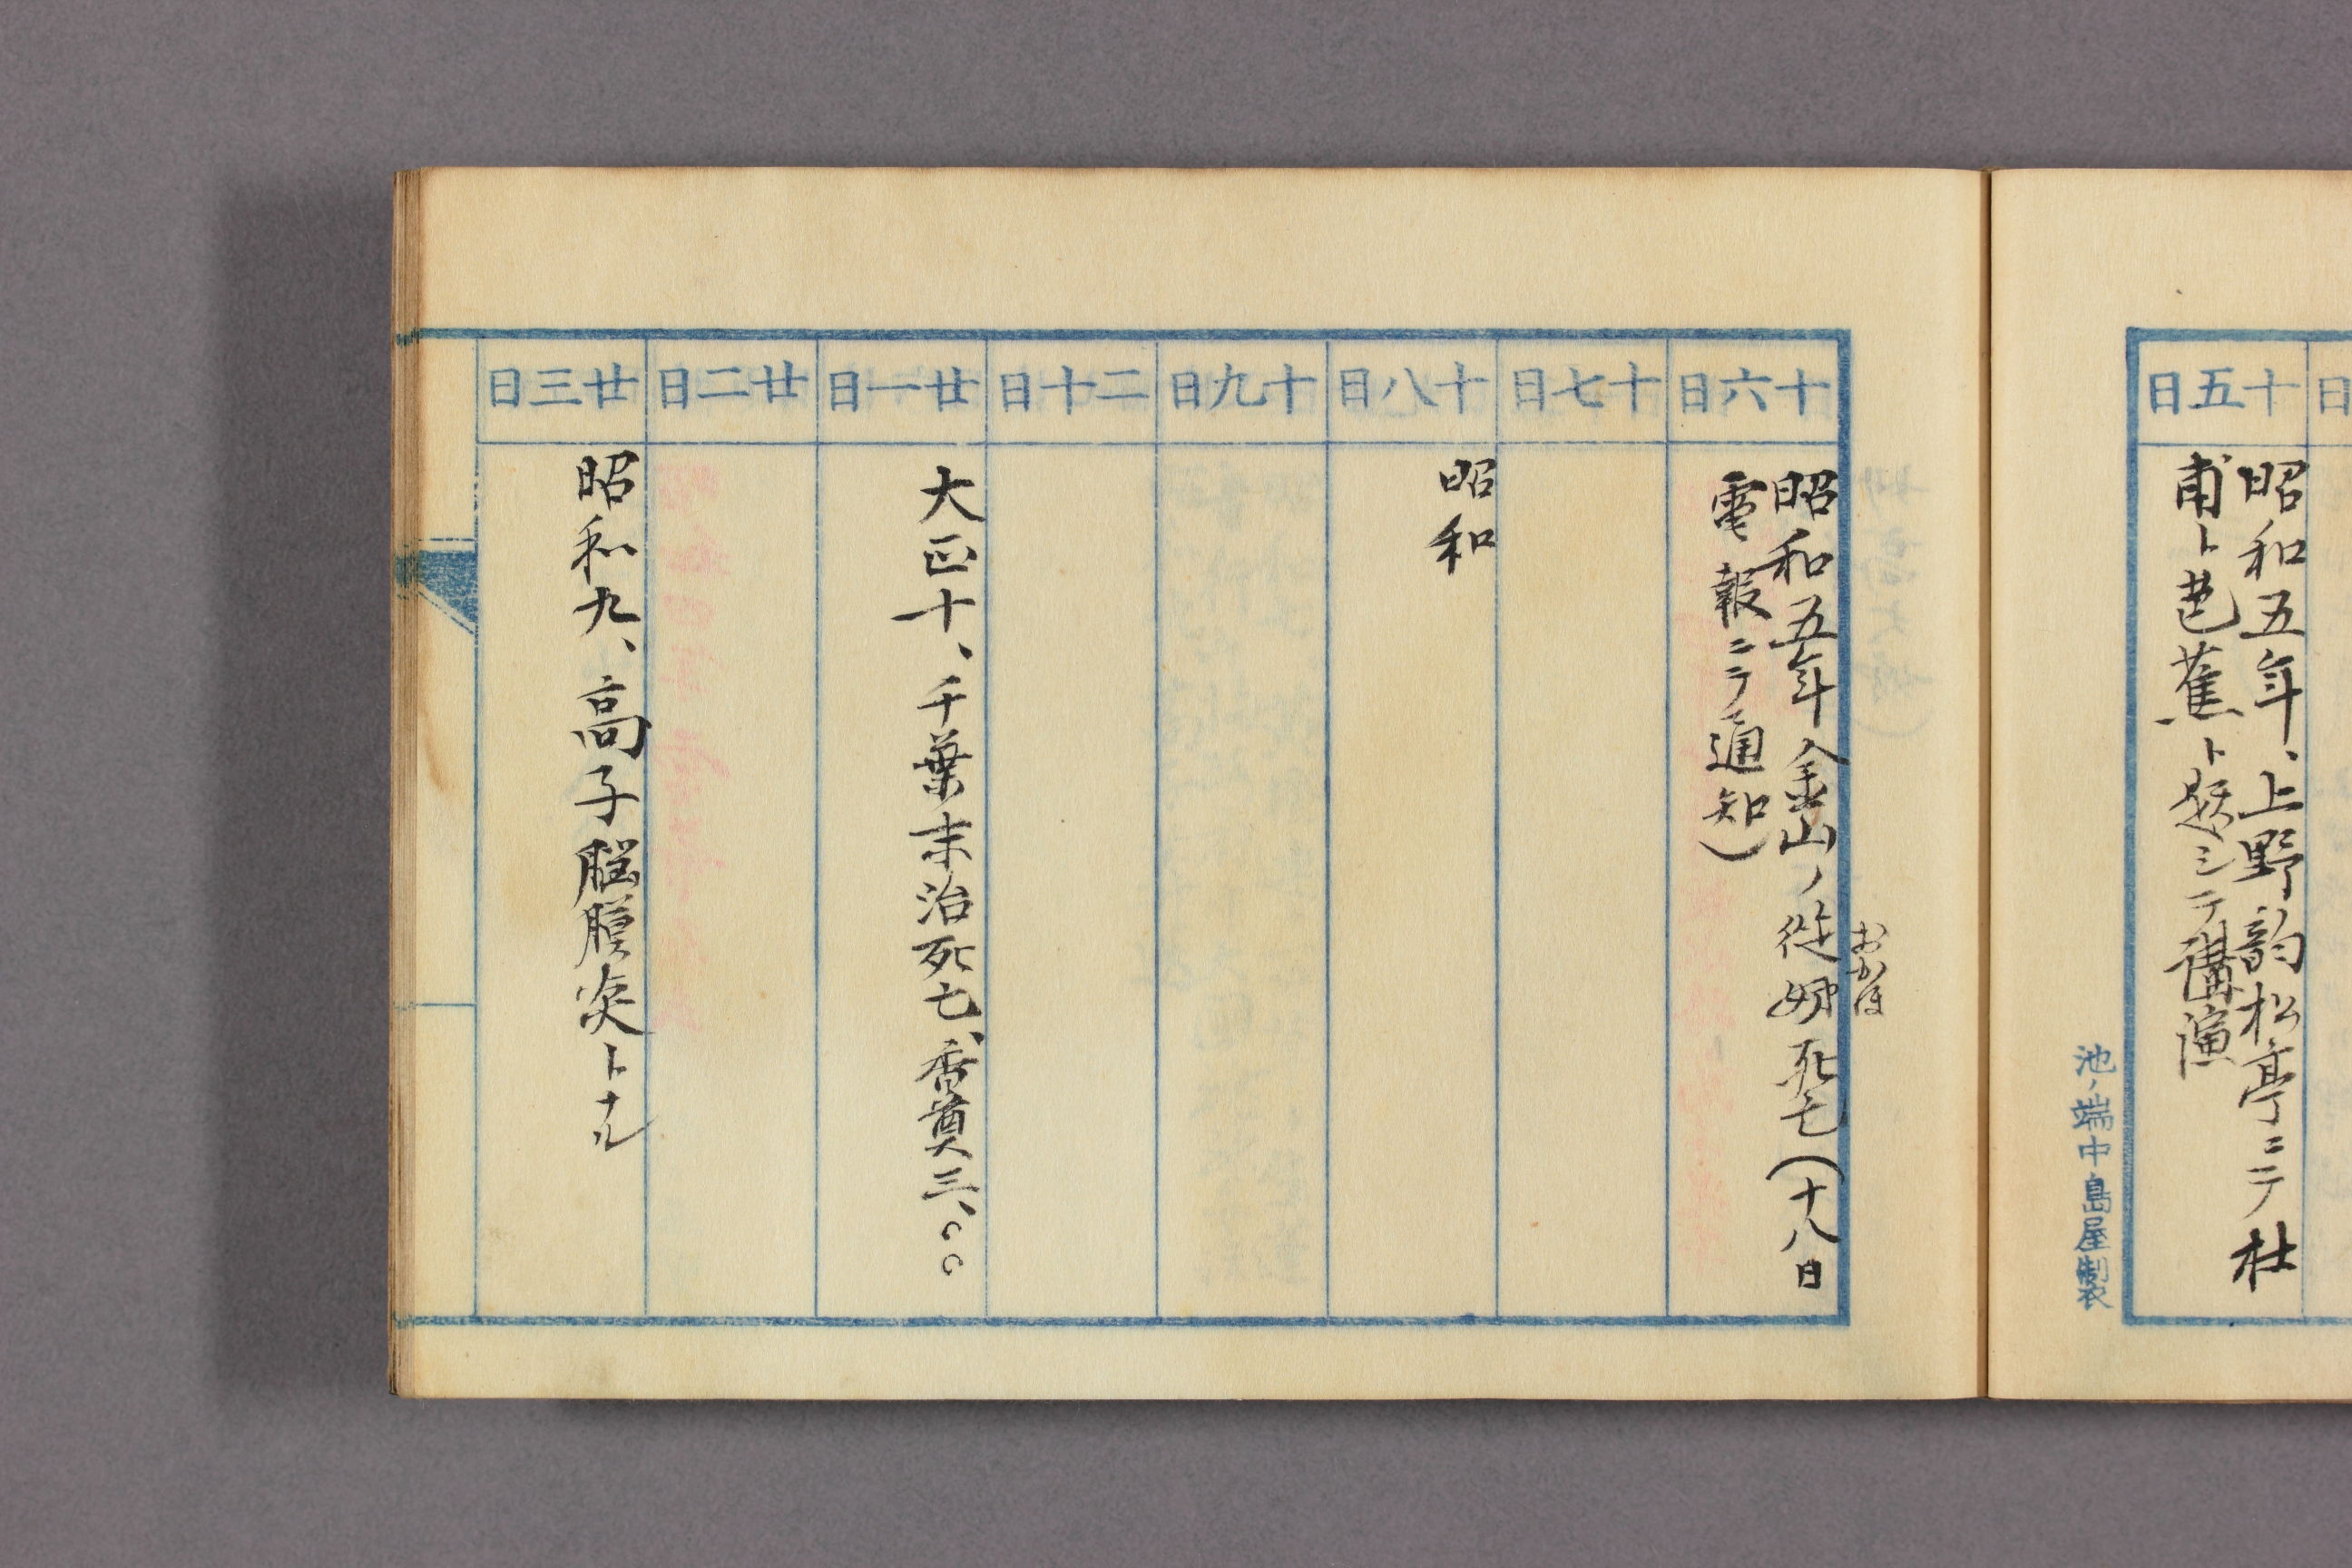 十五日
昭和五年、上野韵松亭ニテ杜
甫ト芭蕉ト題シテ講演
池ノ端中島屋製
十六日
昭和五年金山ノ従姉死亡(十八日
おかほ
電報ニテ通知)
十七日
十八日
昭和
十九日
二十日
廿一日
大正十、千葉末治死亡、香奠三、〇〇
廿二日
廿三日
昭和九、高子脳膜炎トナル